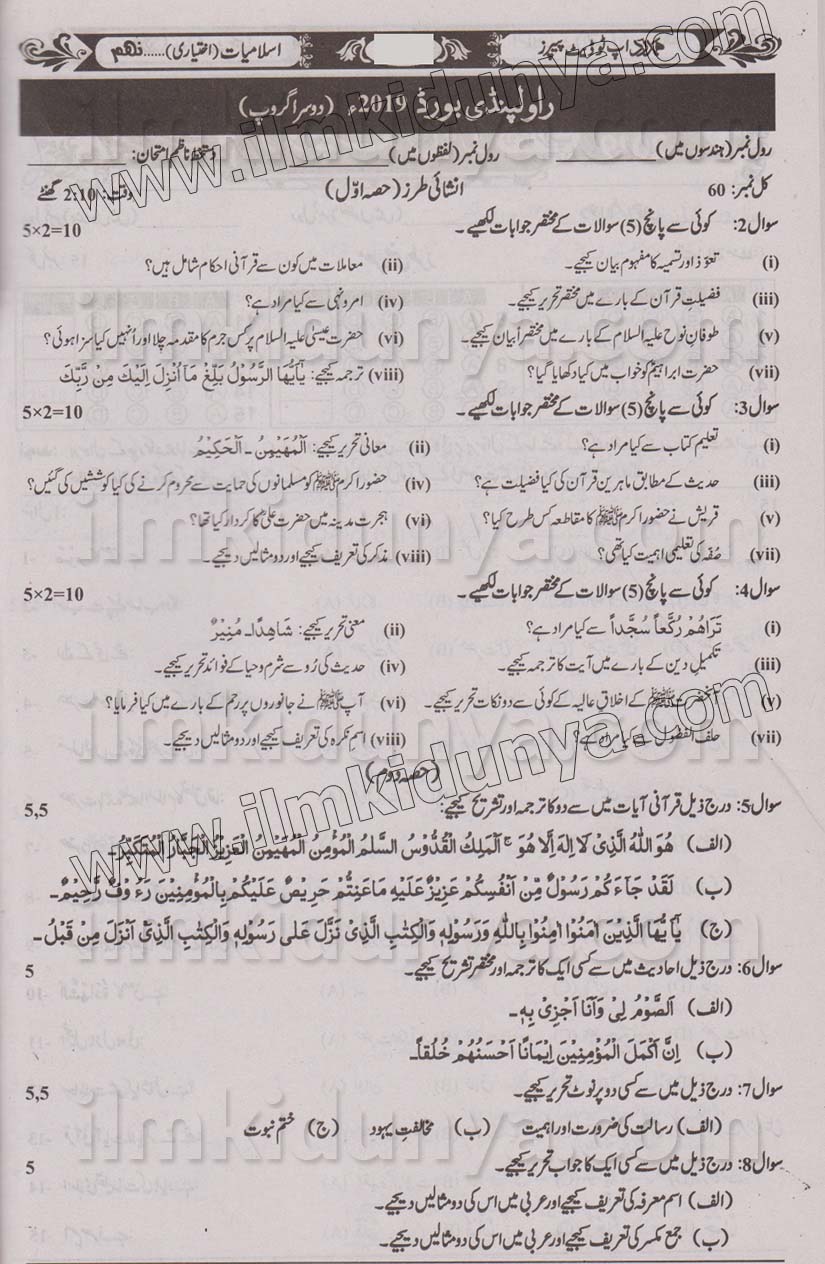 اسلامیات (اختیاری)......نہم
اپ ٹو ڈیٹ پیپرز
راولپنڈی بورڈ 2019ء (دوسرا گروپ)
رول نمبر (ہندسوں میں) ____________ رول نمبر (لفظوں میں) ____________ دستخط ناظم امتحان: ____________
کل نمبر: 60 انشائی طرز (حصہ اوّل) وقت: 2:10 گھنٹے
سوال 2: کوئی سے پانچ (5) سوالات کے مختصر جوابات لکھیے۔ 5×2=10
(i) تعوّذ اور تسمیہ کا مفہوم بیان کیجیے۔ (ii) معاملات میں کون سے قرآنی احکام شامل ہیں؟
(iii) فضیلتِ قرآن کے بارے میں مختصر تحریر کیجیے۔ (iv) امر و نہی سے کیا مراد ہے؟
(v) طوفانِ نوح علیہ السلام کے بارے میں مختصراً بیان کیجیے۔ (vi) حضرت عیسیٰ علیہ السلام پر کس جرم کا مقدمہ چلا اور اُنہیں کیا سزا ہوئی؟
(vii) حضرت ابراہیمؑ کو خواب میں کیا دکھایا گیا؟ (viii) ترجمہ کیجیے: يٰٓاَيُّهَا الرَّسُوْلُ بَلِّغْ مَآ اُنْزِلَ اِلَيْكَ مِنْ رَّبِّكَ
سوال 3: کوئی سے پانچ (5) سوالات کے مختصر جوابات لکھیے۔ 5×2=10
(i) تعلیم کتاب سے کیا مراد ہے؟ (ii) معانی تحریر کیجیے: اَلْمُهَيْمِنُ ۔ اَلْحَكِيْمُ
(iii) حدیث کے مطابق ماہرینِ قرآن کی کیا فضیلت ہے؟ (iv) حضور اکرم ﷺ کو مسلمانوں کی حمایت سے محروم کرنے کی کیا کوششیں کی گئیں؟
(v) قریش نے حضور اکرم ﷺ کا مقاطعہ کس طرح کیا؟ (vi) ہجرت مدینہ میں حضرت علیؓ کا کردار کیا تھا؟
(vii) صُفّہ کی تعلیمی اہمیت کیا تھی؟ (viii) مذکر کی تعریف کیجیے اور دو مثالیں دیجیے۔
سوال 4: کوئی سے پانچ (5) سوالات کے مختصر جوابات لکھیے۔ 5×2=10
(i) تَرَاهُمْ رُكَّعاً سُجَّداً سے کیا مراد ہے؟ (ii) معنی تحریر کیجیے: شَاهِدًا۔ مُنِيْرٌ
(iii) تکمیلِ دین کے بارے میں آیت کا ترجمہ کیجیے۔ (iv) حدیث کی رُو سے شرم و حیا کے فوائد تحریر کیجیے۔
(v) آنحضرت ﷺ کے اخلاقِ عالیہ کے کوئی سے دو نکات تحریر کیجیے۔ (vi) آپ ﷺ نے جانوروں پر رحم کے بارے میں کیا فرمایا؟
(vii) حلف الفضول سے کیا مراد ہے؟ (viii) اسمِ نکرہ کی تعریف کیجیے اور دو مثالیں دیجیے۔
(حصہ دوم)
سوال 5: درج ذیل قرآنی آیات میں سے دو کا ترجمہ اور تشریح کیجیے: 5,5
(الف) هُوَ اللّٰهُ الَّذِىْ لَا اِلٰهَ اِلَّا هُوَ ۚ اَلْمَلِكُ الْقُدُّوْسُ السَّلٰمُ الْمُؤْمِنُ الْمُهَيْمِنُ الْعَزِيْزُ الْجَبَّارُ الْمُتَكَبِّرُ۔
(ب) لَقَدْ جَآءَكُمْ رَسُوْلٌ مِّنْ اَنْفُسِكُمْ عَزِيْزٌ عَلَيْهِ مَا عَنِتُّمْ حَرِيْصٌ عَلَيْكُمْ بِالْمُؤْمِنِيْنَ رَءُوْفٌ رَّحِيْمٌ۔
(ج) يٰٓاَيُّهَا الَّذِيْنَ اٰمَنُوْا اٰمِنُوْا بِاللّٰهِ وَرَسُوْلِهٖ وَالْكِتٰبِ الَّذِىْ نَزَّلَ عَلٰى رَسُوْلِهٖ وَالْكِتٰبِ الَّذِىْٓ اَنْزَلَ مِنْ قَبْلُ۔
سوال 6: درج ذیل احادیث میں سے کسی ایک کا ترجمہ اور مختصر تشریح کیجیے۔ 5
(الف) اَلصَّوْمُ لِىْ وَاَنَا اَجْزِىْ بِهٖ۔
(ب) اِنَّ اَكْمَلَ الْمُؤْمِنِيْنَ اِيْمَانًا اَحْسَنُهُمْ خُلُقاً۔
سوال 7: درج ذیل میں سے کسی دو پر نوٹ تحریر کیجیے۔ 5,5
(الف) رسالت کی ضرورت اور اہمیت (ب) مخالفتِ یہود (ج) ختم نبوت
سوال 8: درج ذیل میں سے کسی ایک کا جواب تحریر کیجیے۔ 5
(الف) اسم معرفہ کی تعریف کیجیے اور عربی میں اس کی دو مثالیں دیجیے۔
(ب) جمع مکسر کی تعریف کیجیے اور عربی میں اس کی دو مثالیں دیجیے۔
www.ilmkidunya.com
www.ilmkidunya.com
ilmkidunya.com
ilmkidunya.com
ilmkidunya.com
ilmkidunya.com
ilmkidunya.com
ilmkidunya.com